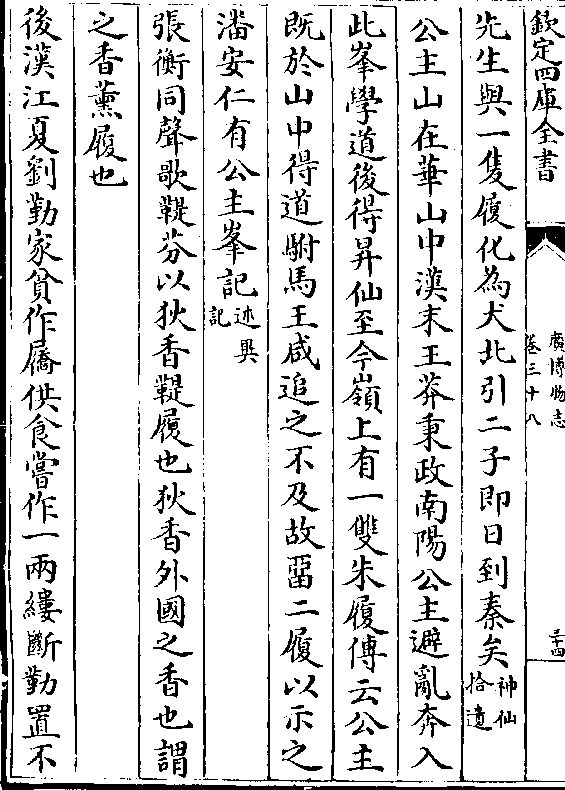 欽定四庫全書
廣博物志
卷三十八
三十四
先生與一隻履化為犬北引二子即日到秦矣神仙拾遺
公主山在華山中漢末王莽秉政南陽公主避亂奔入
此峯學道後得昇仙至今嶺上有一雙朱履傳云公主
既於山中得道駙馬王咸追之不及故留二履以示之
潘安仁有公主峯記述異記
張衡同聲歌鞮芬以狄香鞮履也狄香外國之香也謂
之香薰履也
後漢江夏劉勤家貧作屩供食嘗作一兩縷斷勤置不